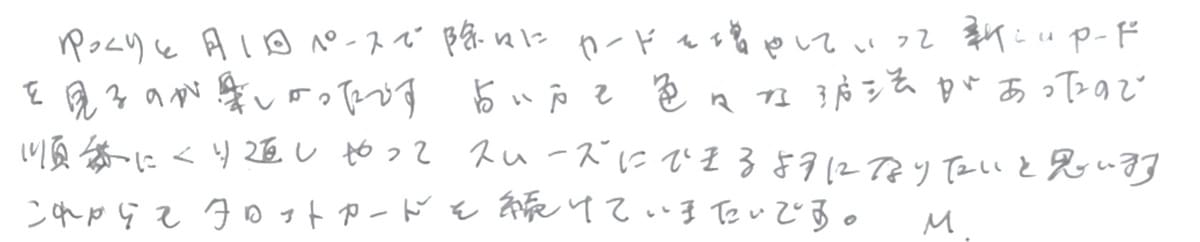 ゆっくりと月1回ペースで除々に カードを増やしていって 新しいカード
を見るのが楽しかったです 占い方も 色々な方法があったので
順番にくり返しやって スムーズにできるようになりたいと思います
これからもタロットカードを続けていきたいです。 M.